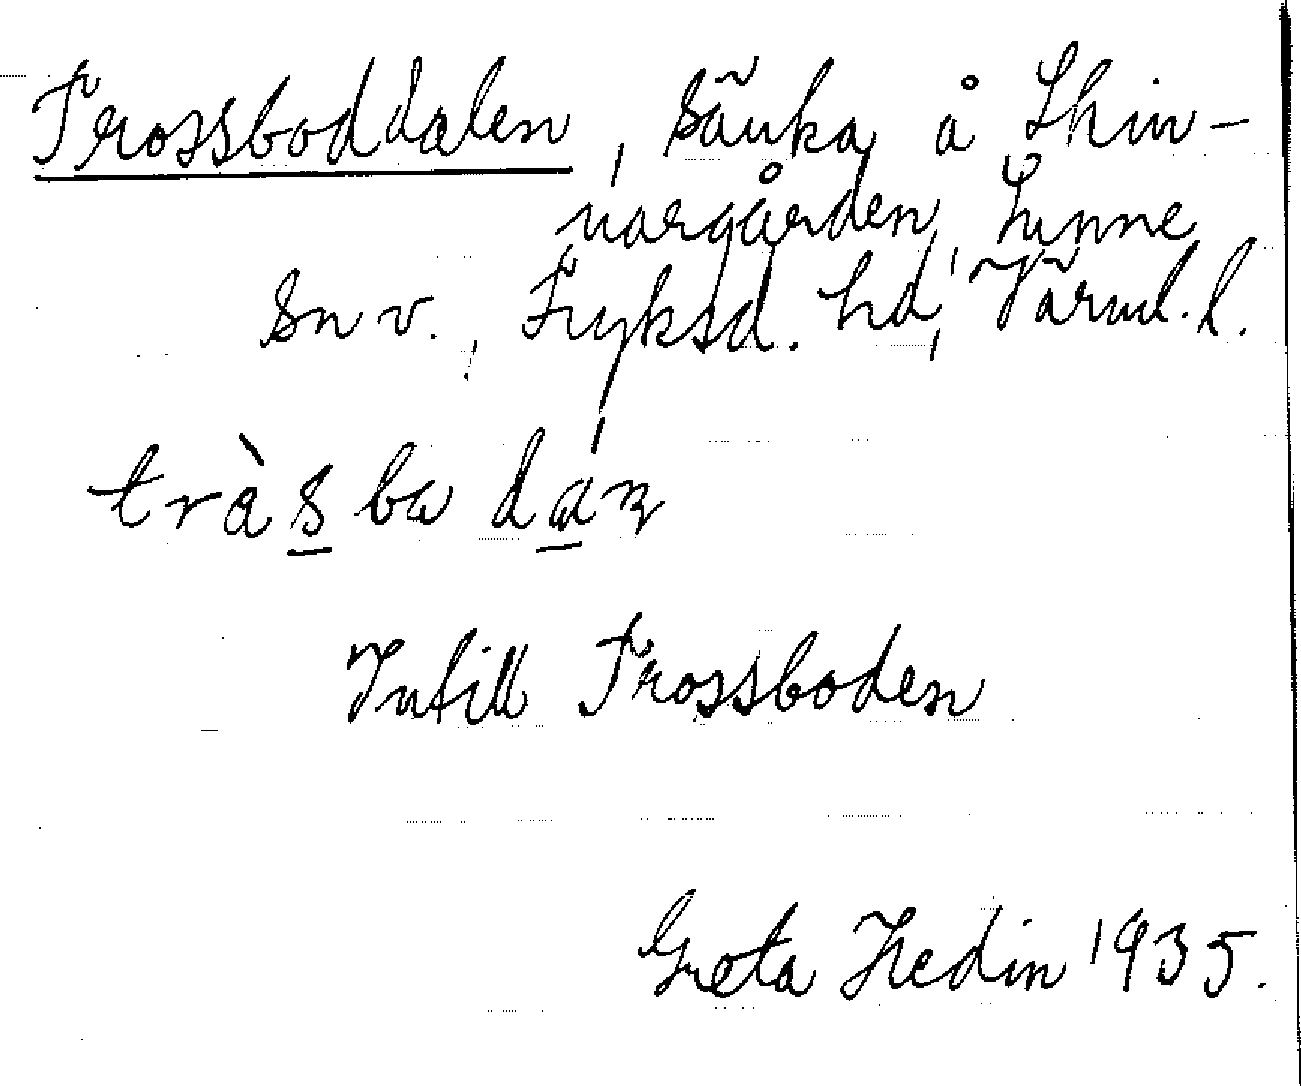 Trossboddalen, sänka å Skin-
nargården, Sunne
sn v., Fryksd. hd, Värml. l.
tràsba dán
Intill Trossboden
Greta Hedin 1935.